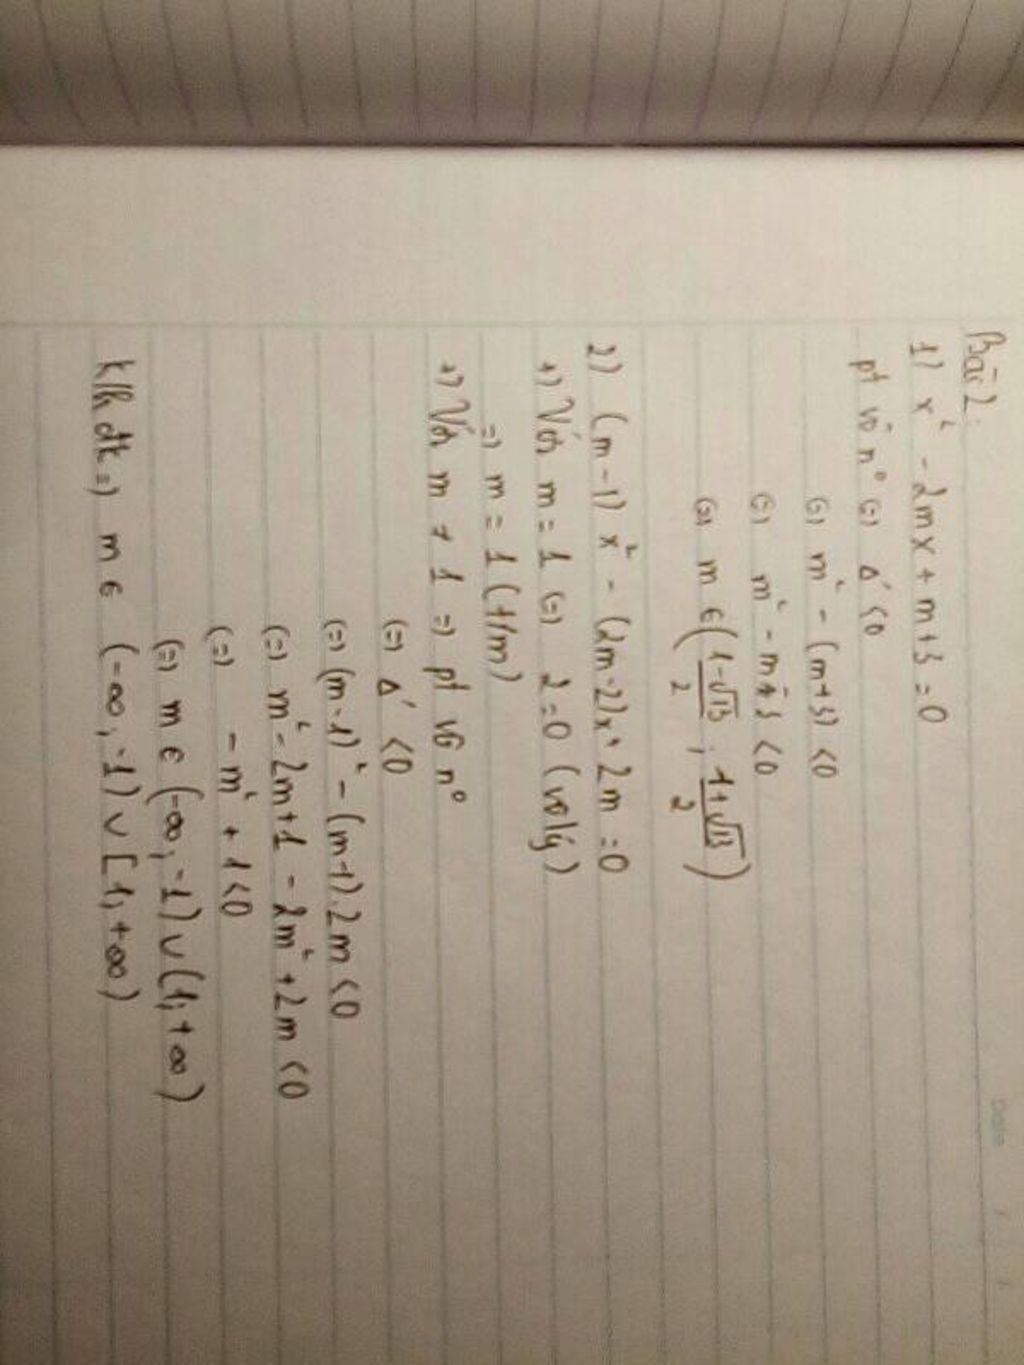 Bài 2:
1) x² - 2mx + m+3 = 0
pt vô n° (=) Δ' <0
(=) m² - (m+3) <0
(=) m² - m - 3 <0
(=) m ∈ (1-√13/2 ; 1+√13/2)
2) (m-1) x² - (2m-2)x + 2m = 0
+) Với m = 1 (=) 2=0 (vô lý)
=) m = 1 (t/m)
+) Với m ≠ 1 =) pt vô n°
(=) Δ' <0
(=) (m-1)² - (m-1).2m <0
(=) m² - 2m+1 - 2m² + 2m <0
(=) - m² + 1 <0
(=) m ∈ (-∞; -1) ∪ (1; +∞)
k/h đk =) m ∈ (-∞; -1) ∪ [1; +∞)
Date